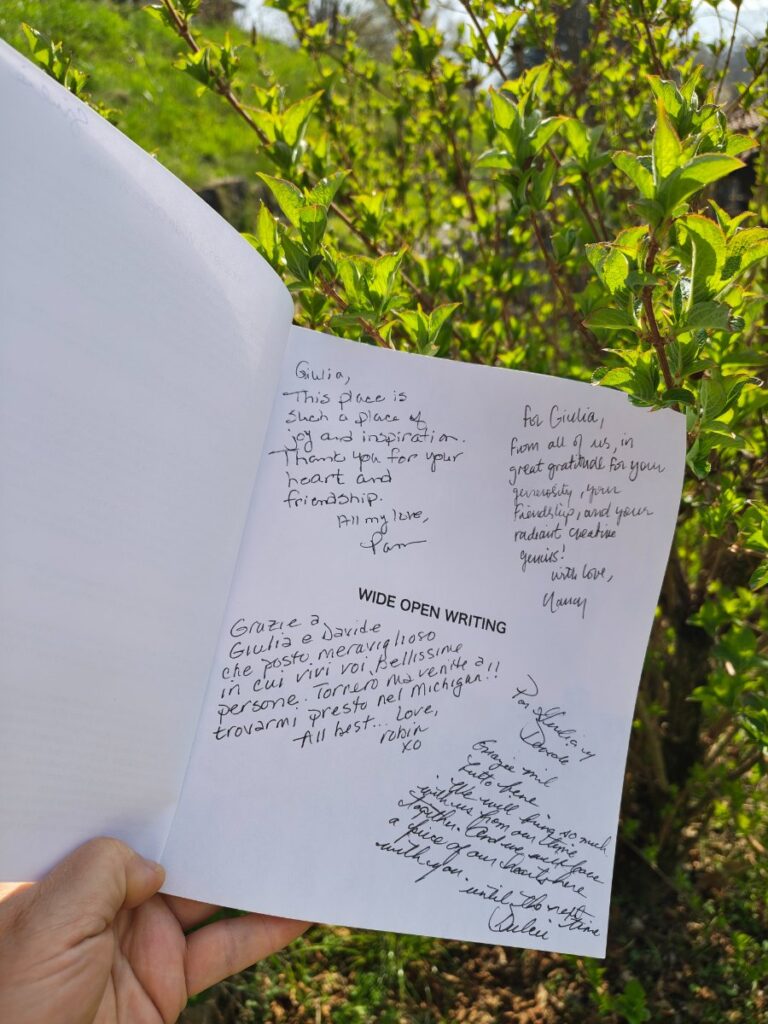 Giulia,
This place is
such a place of
joy and inspiration.
Thank you for your
heart and
friendship.
All my love,
Pam
for Giulia,
from all of us, in
great gratitude for your
generosity, your
friendship, and your
radiant creative
genius!
with love,
Nancy
WIDE OPEN WRITING
Grazie a
Giulia e Davide
che posto meraviglioso
in cui vivi voi, Bellissime
persone. Tornerò ma venite a
trovarmi presto nel Michigan!!
All best... Love,
robin
xo
Giulia
Davide
Grazie mil
tutto bene
We will bring so much
with us from our time
together. And we will leave
a piece of our hearts here
with you. until the next time
Dulcie